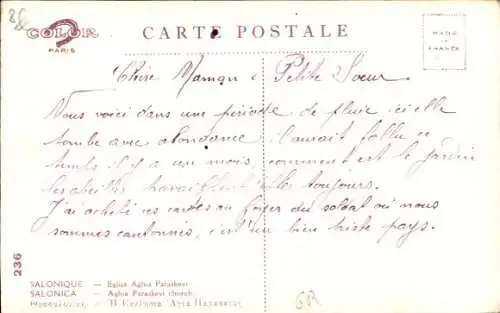 COLOR
PARIS
CARTE POSTALE
MADE
IN
FRANCE
Chère Maman & Petite Soeur
Nous voici dans une période de pluie ici elle
tombe avec abondance il aurait fallu ce
temps il y a un mois, comment est le jardin
les abeilles travaillent elle toujours.
J'ai acheté ces cartes au foyer du soldat où nous
sommes cantonnés, c'est un bien triste pays.
236
SALONIQUE — Eglise Aghia Paraskevi
SALONICA — Aghia Paraskevi church